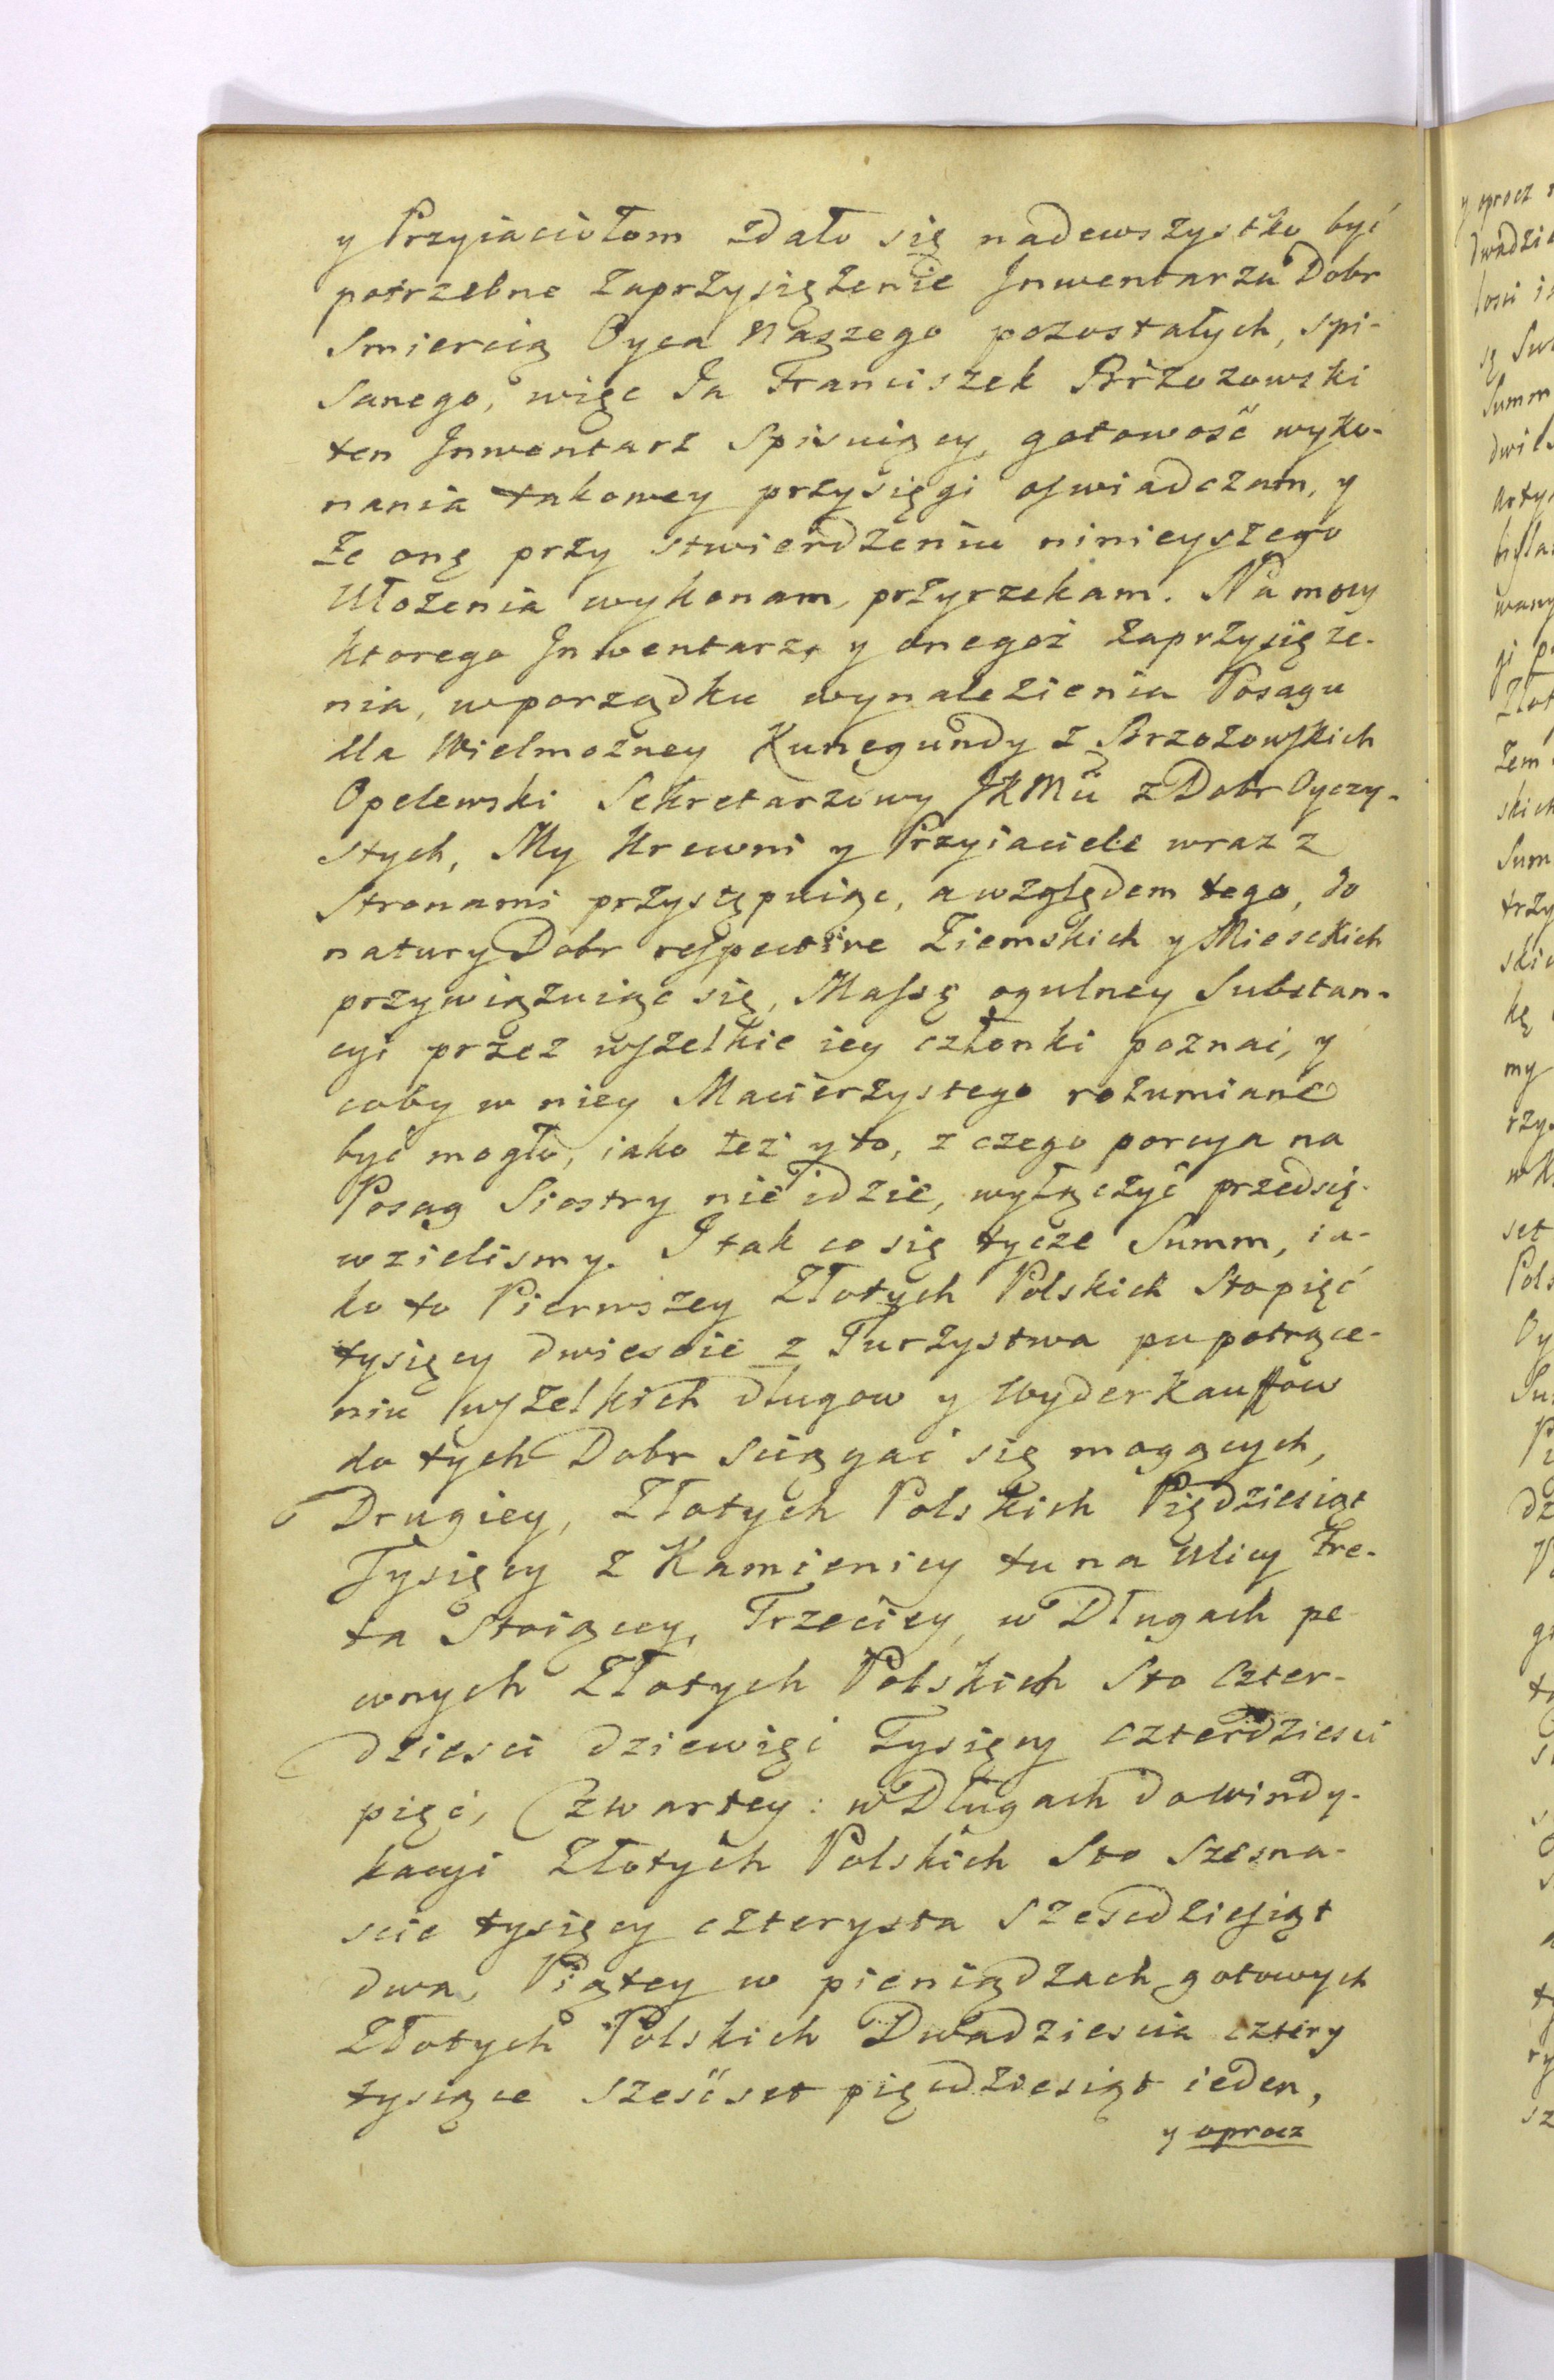 y Przyiaciołom zdało się nadewszystko być
potrzebne zaprzysiężenie Jnwentarza Dobr
Smiercią Oyca Naszego pozostałych, spi-
sanego, więc Ja Franciszek Brzozowski
ten Jnwentarz Spisuiący, gotowość wyko-
nania takowey przysięgi oswiadczam, y
że onę przy stwierdzeniu ninieyszego
Ułożenia wykonam, przyrzekam. Na mocy
ktorego Jnwentarza y onegoż zaprzysięże-
nia, wporządku wynalezienia Posagu
dla Wielmożney Kunegundy z Brzozowskich
Opelewski Sekretarzowy JKMci z Dobr Oyczy-
stych, My Krewni y Przyiaciele wraz z
Stronami przystępuiąc, a względem tego, do
natury Dobr respective Ziemskich y Miesckich
przywiązuiąc się, Massę ogulney Substan-
cyi przez wszelkie iey członki poznać, y
coby w niey Macierzystego rozumiane
być mogło, iako też y to, z czego porcya na
Posag Siostry nie idzie, wyłączyć przedsię-
wzielismy. J tak co się tycze Summ, ia-
ko to Pierwszey Złotych Polskich Stopięć
tysięcy dwiescie z Turzystwa po potrące-
niu wszelkich długow y Wyderkauffow
do tych Dobr sciągać się mogących,
Drugiey, Złotych Polskich Pięćdziesiąt
Tysięcy z Kamienicy tu na Ulicy Fre-
ta Stoiącey, Trzeciey, w Długach pe-
wnych Złotych Polskich Sto czter-
dziesci dziewięć Tysięcy czterdziesci
pięć, Czwartey: w Długach do windy-
kacyi Złotych Polskich Sto szesna-
scie tysięcy czterysta szescdziesiąt
dwa, Piątey w pieniądzach gotowych
Złotych Polskich Dwadziescia cztery
tysiące sześćset pięćdziesiąt ieden,
y oprocz
y oprocz